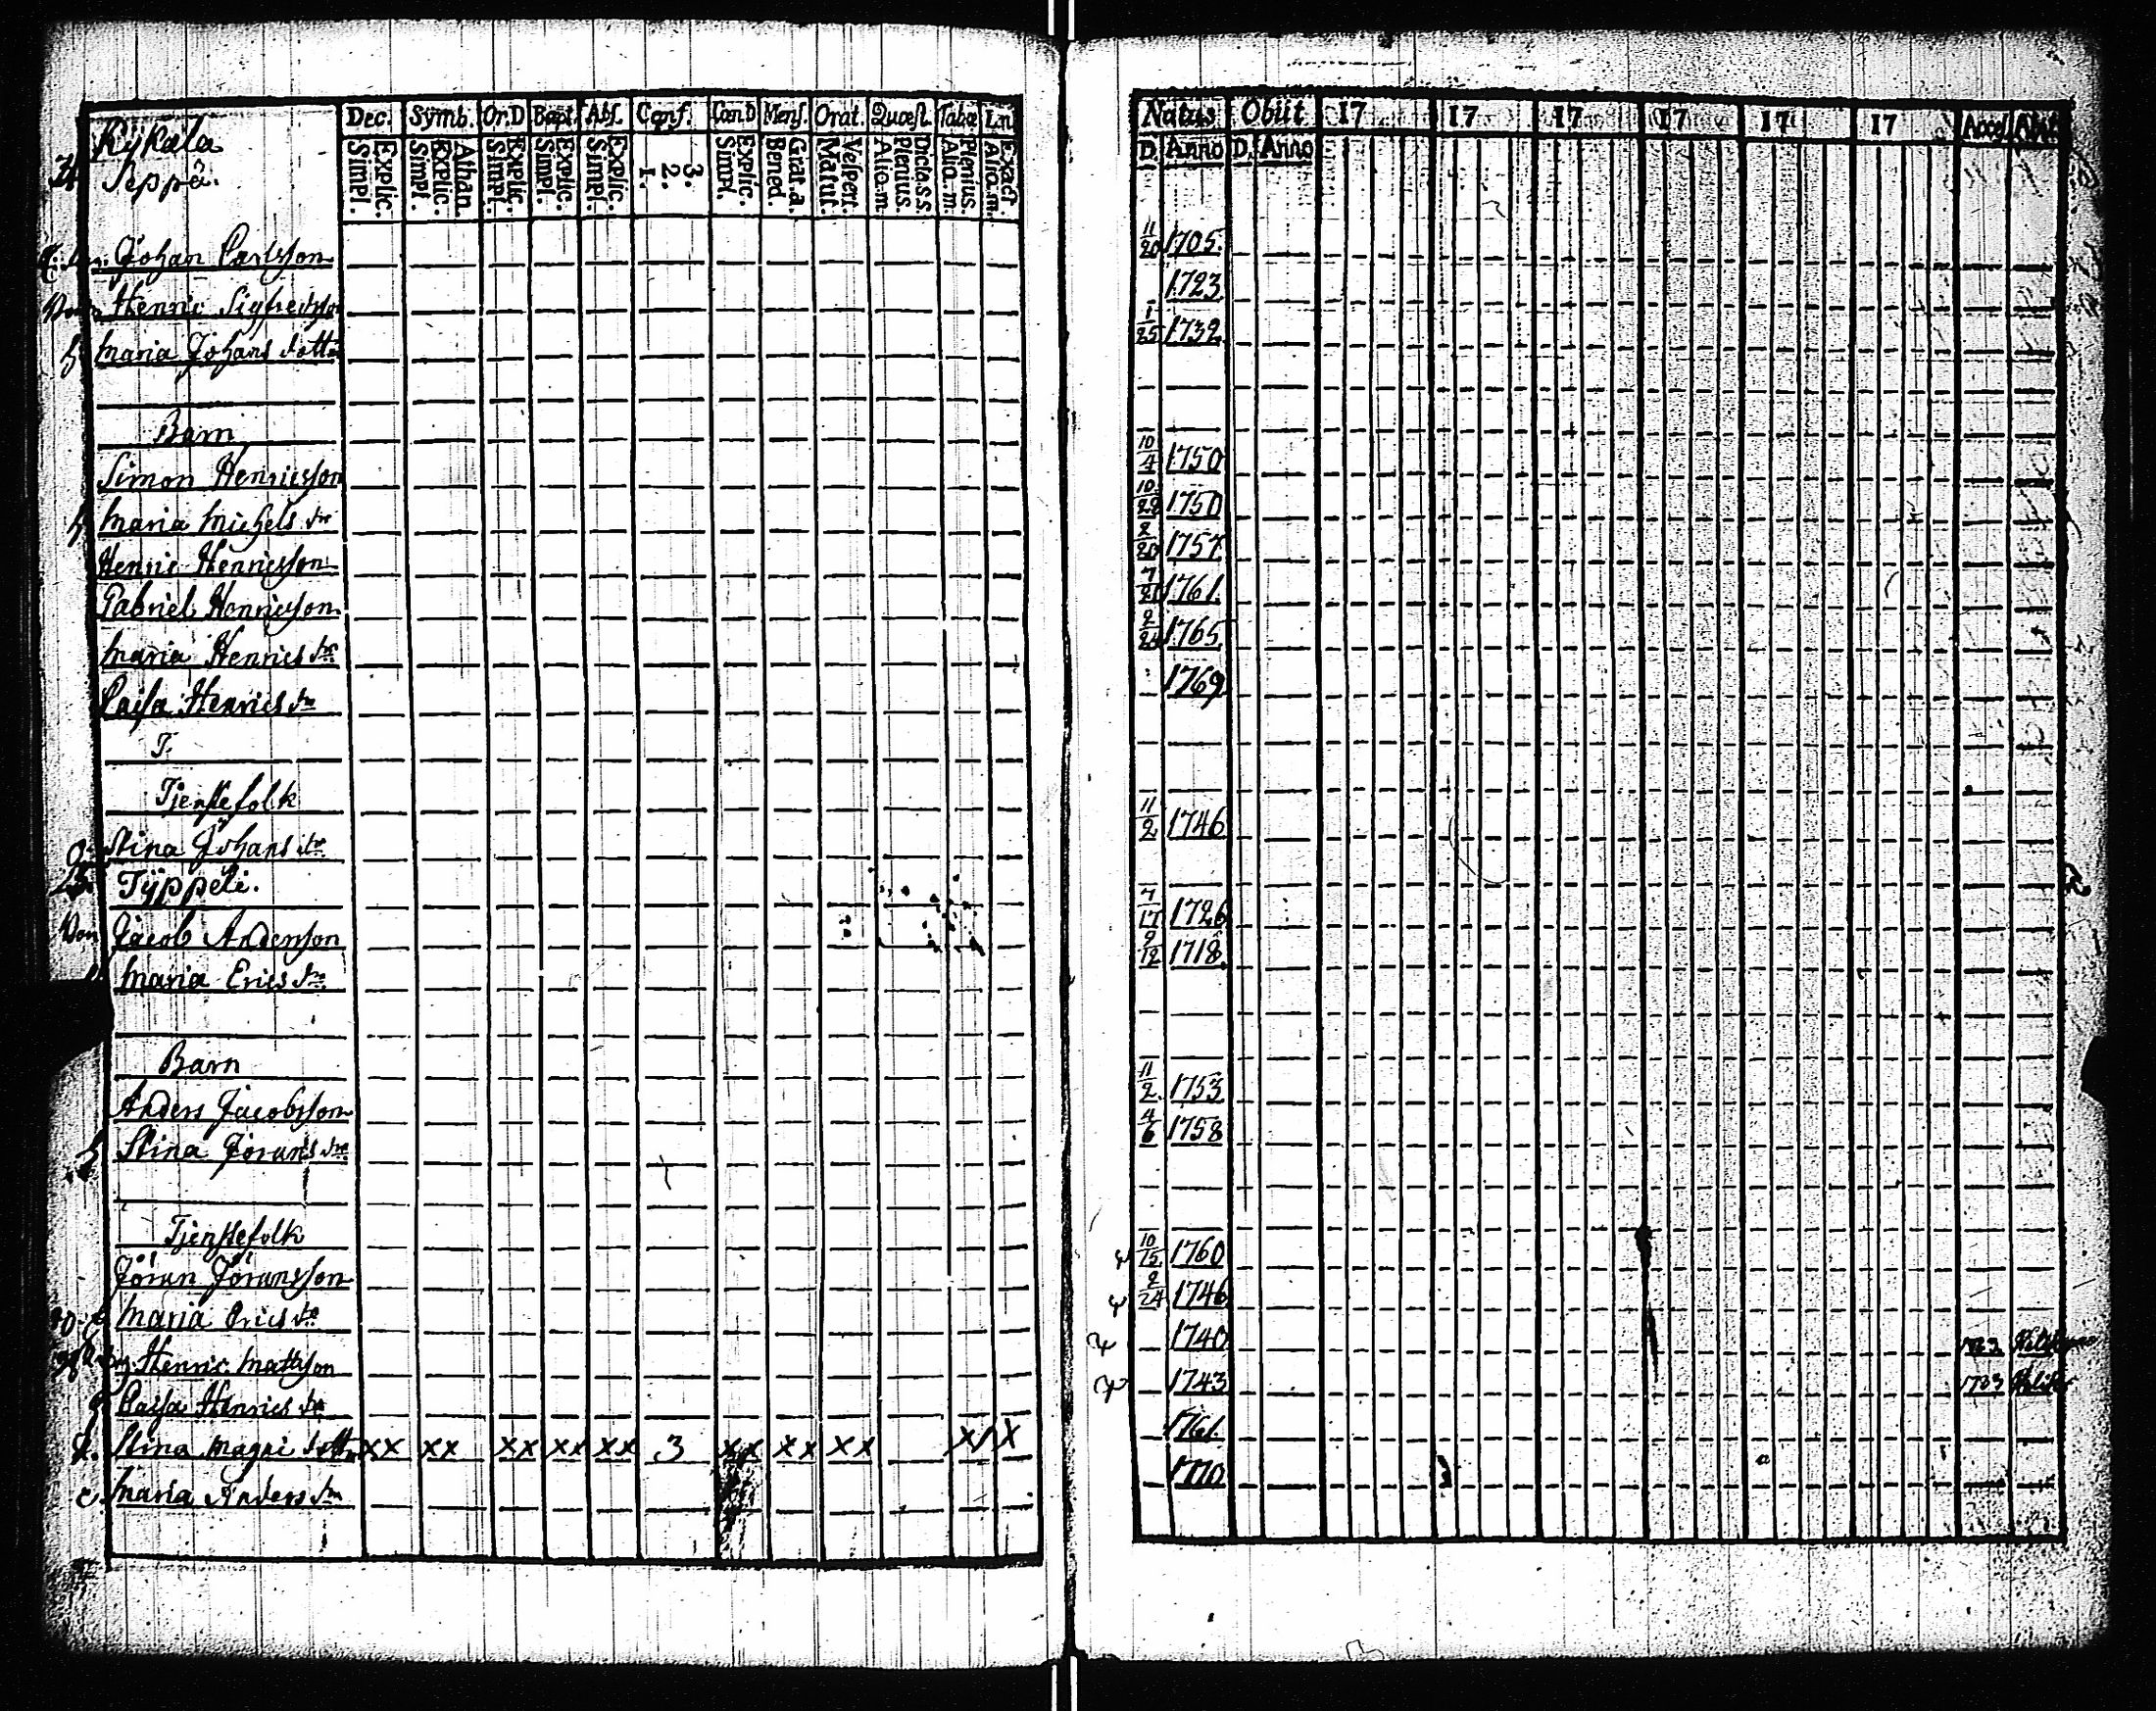 Rÿkala
Seppä.
Dec. Symb. Or.D Bapt. Abs. Conf. Cœn.D Mens. Orat. Quæst. Tabæ
Explic. Simpl. Athan. Explic. Simpl. Explic. Simpl. Explic. Simpl. Explic. Simpl. 3. 2. 1. Explic. Simpl. Grat. a. Bened. Vespert. Matut. Dicta.s.s. Plenius. Alio.m. Plenius. Alio.m. Exact. Alio.m.
Natus Obiit 17 17 17 17 17 17
D. Anno D. Anno
Johan Carlsson 11/20 1705.
Henric Sigfredsson 1723
h Maria Johans dotter 1/25 1732
Barn
Simon Henricsson 10/4 1750
h Maria Michels dr 10/29 1750
Henric Henricsson 2/20 1757
Gabriel Henricsson 7/21 1761.
Maria Henrics dr 1765
Caisa Henrics dr 1769
T.
Tjenstefolk
Stina Johans dr 11/2 1746
Tÿppeli.
Jacob Andersson 7/17 1726
Maria Erics dr 9/12 1718
Barn
Anders Jacobsson 11/2 1753
h Stina Jörans dr 4/6 1758
Tjenstefolk
Jöran Jöransson 10/15 1760
Maria Erics dr 2/24 1746
Henric Mattsson 1740
Caisa Henrics dr 1743
Stina Magni dotter xx xx xx xx xx 3 xx xx xx x/ x 1761.
Maria Anders dr 1770